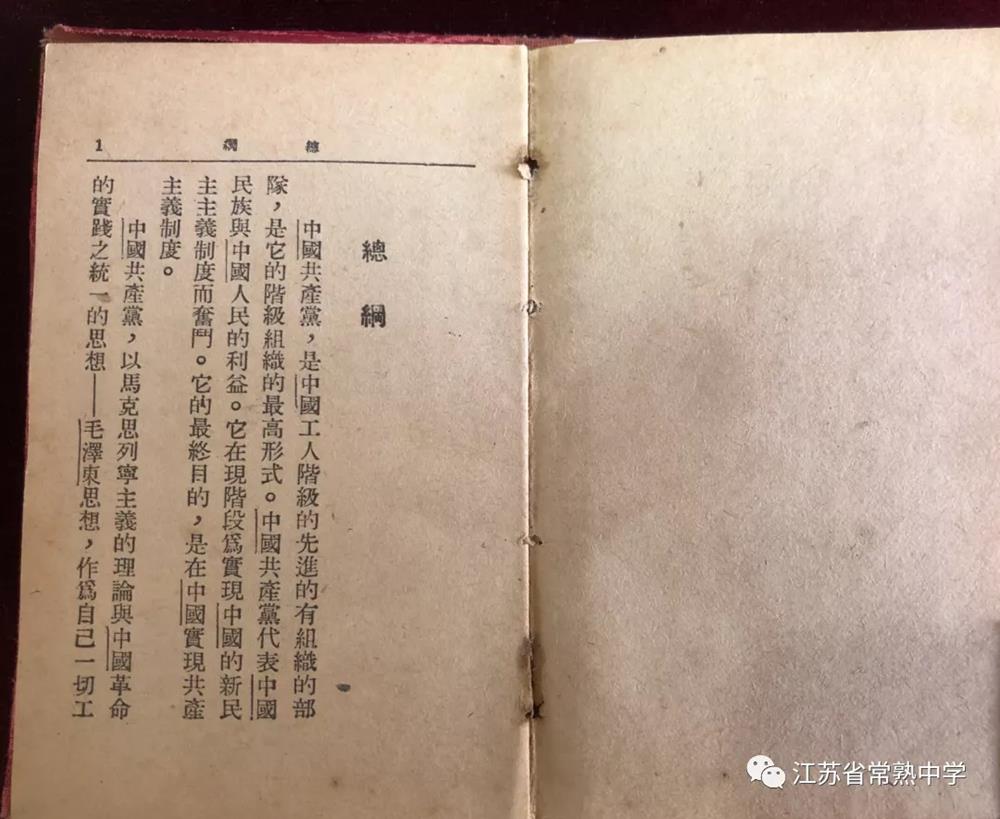 總綱
1
總綱
中國共產黨，是中國工人階級的先進的有組織的部
隊，是它的階級組織的最高形式。中國共產黨代表中國
民族與中國人民的利益。它在現階段爲實現中國的新民
主主義制度而奮鬥。它的最終目的，是在中國實現共產
主義制度。
中國共產黨，以馬克思列寧主義的理論與中國革命
的實踐之統一的思想——毛澤東思想，作爲自己一切工
江苏省常熟中学